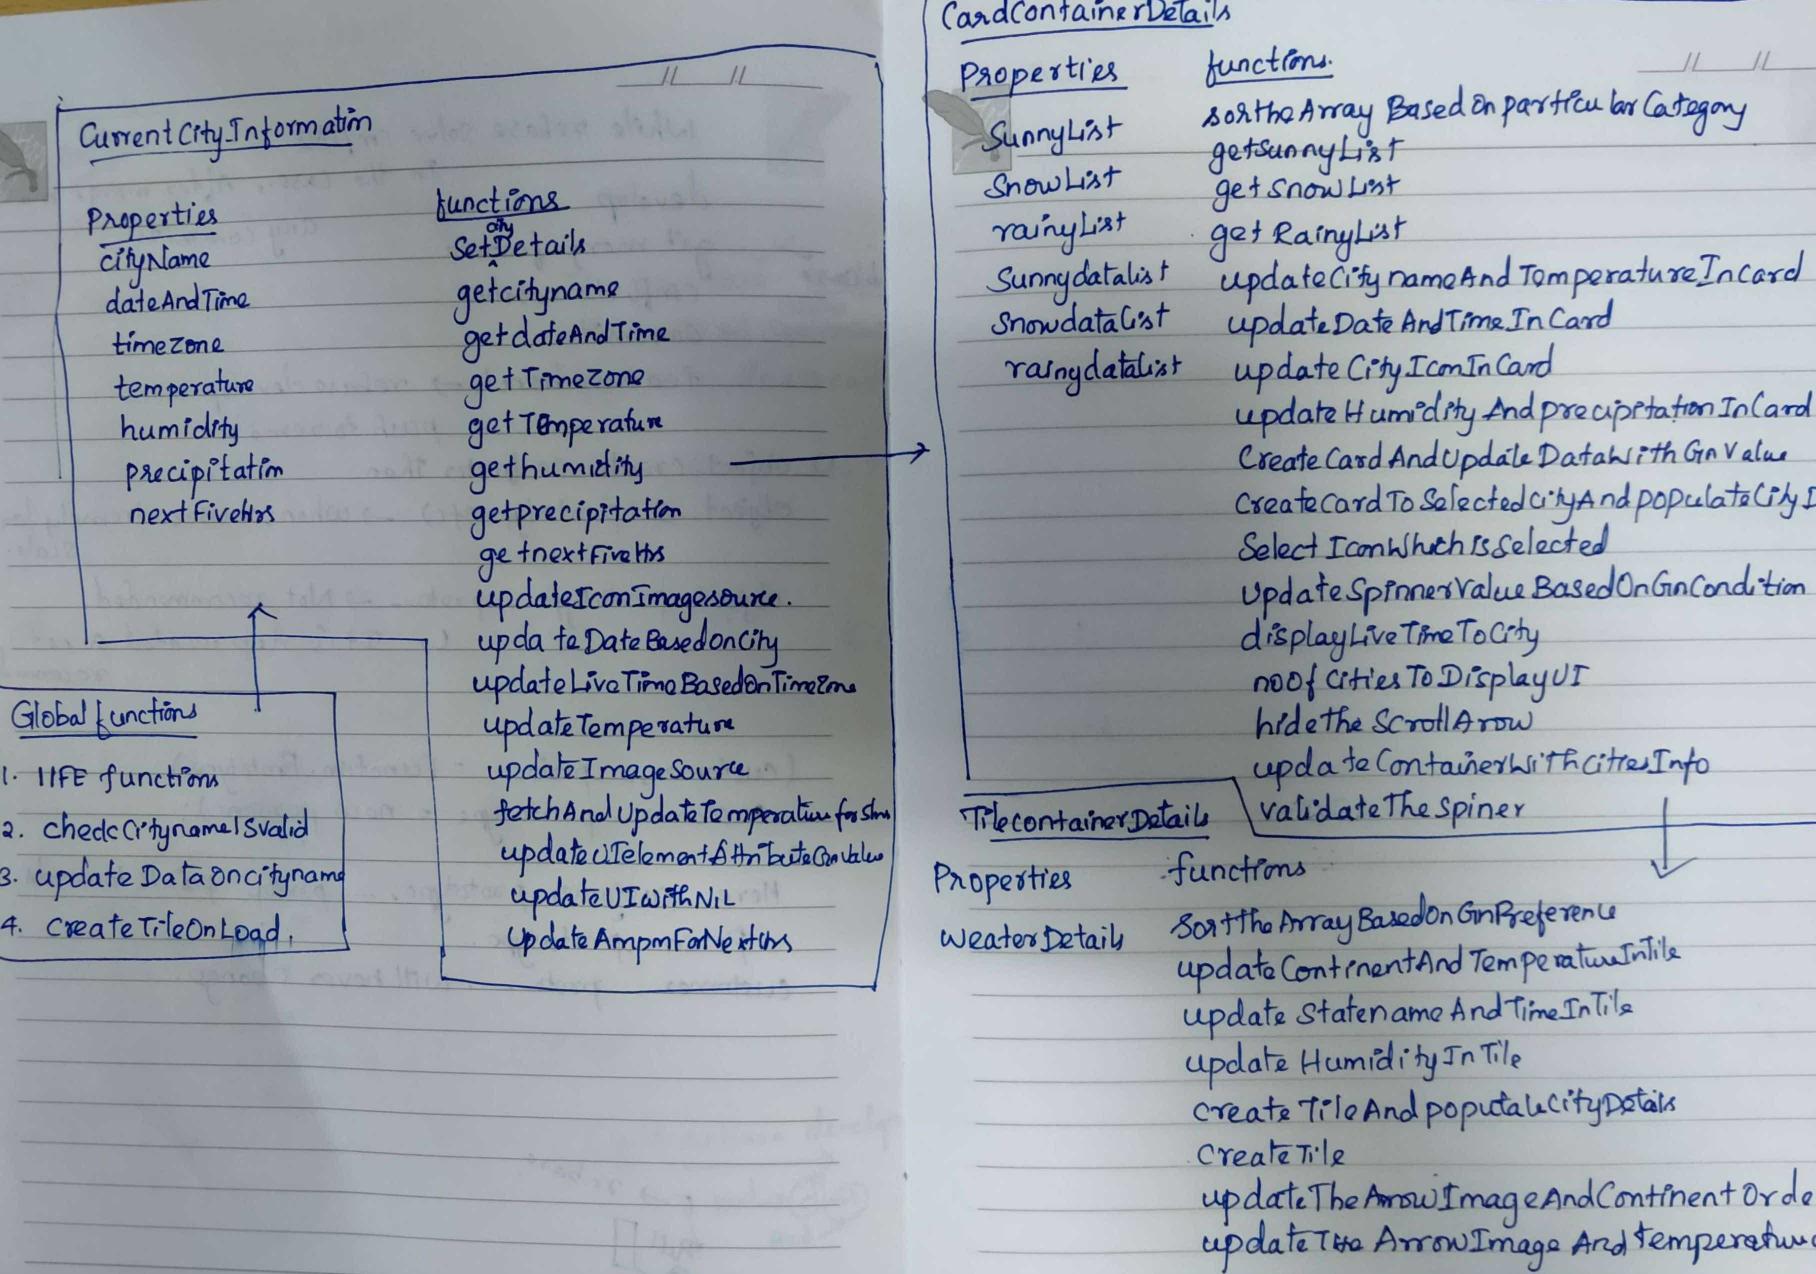 CurrentCityInformation
Properties
cityName
dateAndTime
timezone
temperature
humidity
precipitation
nextFiveHrs
functions
SetcityDetails
getcityname
getdateAndTime
getTimezone
getTemperature
gethumidity
getprecipitation
getnextFiveHrs
updateIconImagesource.
updateDateBasedonCity
updateLiveTimeBasedOnTimezone
updateTemperature
updateImageSource
fetchAndUpdateTemperature for 5hrs
updateUIelementAttributeGnvalue
updateUIwithNIL
UpdateAmpmForNexthrs
Global functions
1. IIFE functions
2. checkCitynameISvalid
3. updateDataoncityname
4. createTileOnLoad.
CardContainerDetails
Properties
SunnyList
SnowList
rainyList
Sunnydatalist
Snowdatalist
rainydatalist
functions.
sortheArray Based on particular Category
getsunnyList
getSnowList
getRainyList
updateCitynameAndTemperatureIncard
updateDateAndTimeInCard
updateCityIconInCard
updateHumidityAndprecipitationInCard
CreateCardAndUpdateDataWithGnValue
CreatecardToSelectedcityAndpopulateCityI
Select IconWhichisSelected
UpdateSpinnerValueBasedOnGnCondition
displayLiveTimeToCity
noOfCitiesToDisplayUI
hidetheScrollArow
updateContainerWithcitiesInfo
validateTheSpiner
TilecontainerDetails
Properties
WeaterDetails
functions
SorttheArrayBasedOnGnPreference
updateContinentAndTemperatureInTile
update StatenameAndTimeInTile
update HumidityInTile
createTileAndpoputaleCityDetails
CreateTile
updateTheArrowImageAndContinentOrde
updateThe ArrowImage And temperature